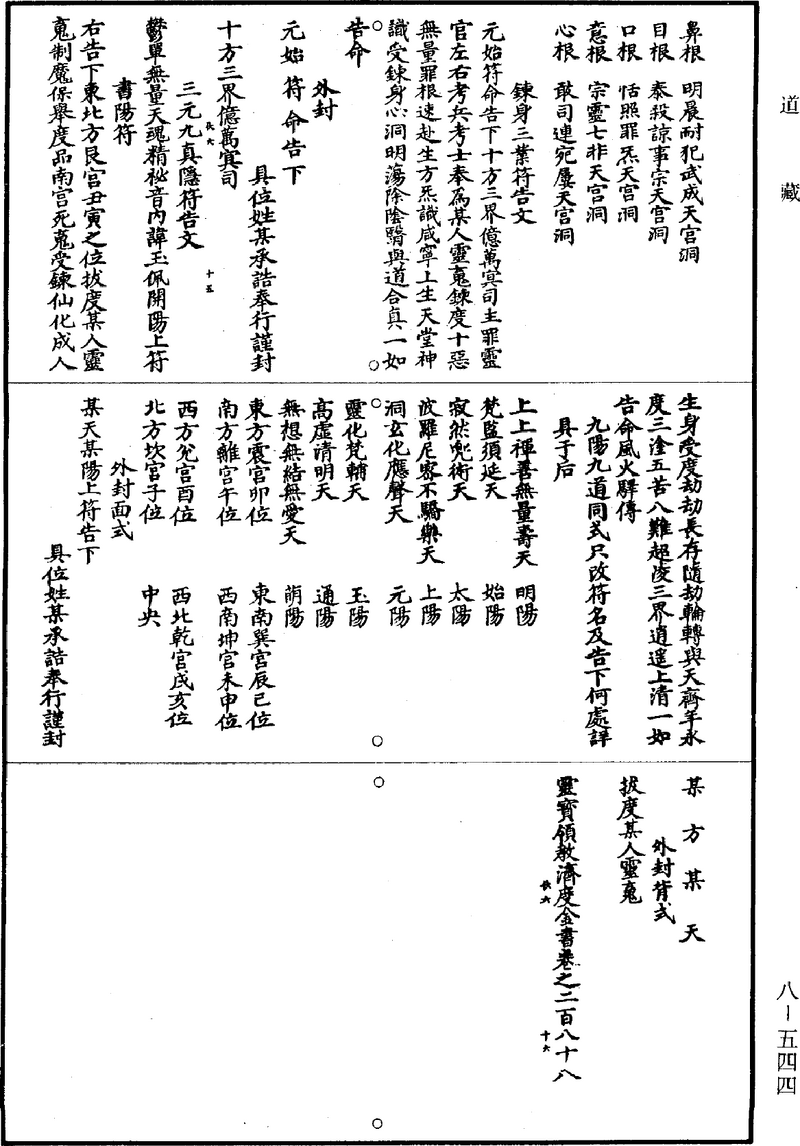 道藏
八－五四四
鼻根　明晨耐犯武成天宮洞
目根　泰殺諒事宗天宮洞
口根　恬照罪炁天宮洞
意根　宗靈七非天宮洞
心根　敢司連宛屢天宮洞
鍊身三業符告文
元始符命告下十方三界億萬冥司主罪靈
官左右考兵考士奉為某人靈䰟鍊度十惡
無量罪根速赴生方炁識咸寧上生天堂神
識受鍊身心洞明蕩除陰翳與道合真一如
告命
外封
元始符命告下
具位姓某承誥奉行謹封
十方三界億萬冥司
三元九真隱符告文
長六　十五
鬱單無量天魂精祕音內諱玉佩開陽上符
書陽符
右告下東北方艮宮丑寅之位拔度某人靈
䰟制魔保舉度品南宮死䰟受鍊仙化成人
生身受度劫劫長存隨劫輪轉與天齊年永
度三塗五苦八難超凌三界逍遙上清一如
告命風火驛傳
九陽九道同式只改符名及告下何處詳
具于后
上上禪善無量壽天　明陽
梵監須延天　始陽
寂然兜術天　太陽
波羅尼密不驕樂天　上陽
洞玄化應聲天　元陽
靈化梵輔天　玉陽
高虛清明天　通陽
無想無結無愛天　䓑陽
東方震宮卯位　東南巽宮辰巳位
南方離宮午位　西南坤宮未申位
西方兊宮酉位　西北乾宮戌亥位
北方坎宮子位　中央
外封面式
某天某陽上符告下
具位姓某承誥奉行謹封
某方某天
外封背式
拔度某人靈䰟
靈寶領教濟度金書卷之二百八十八
長六　十六